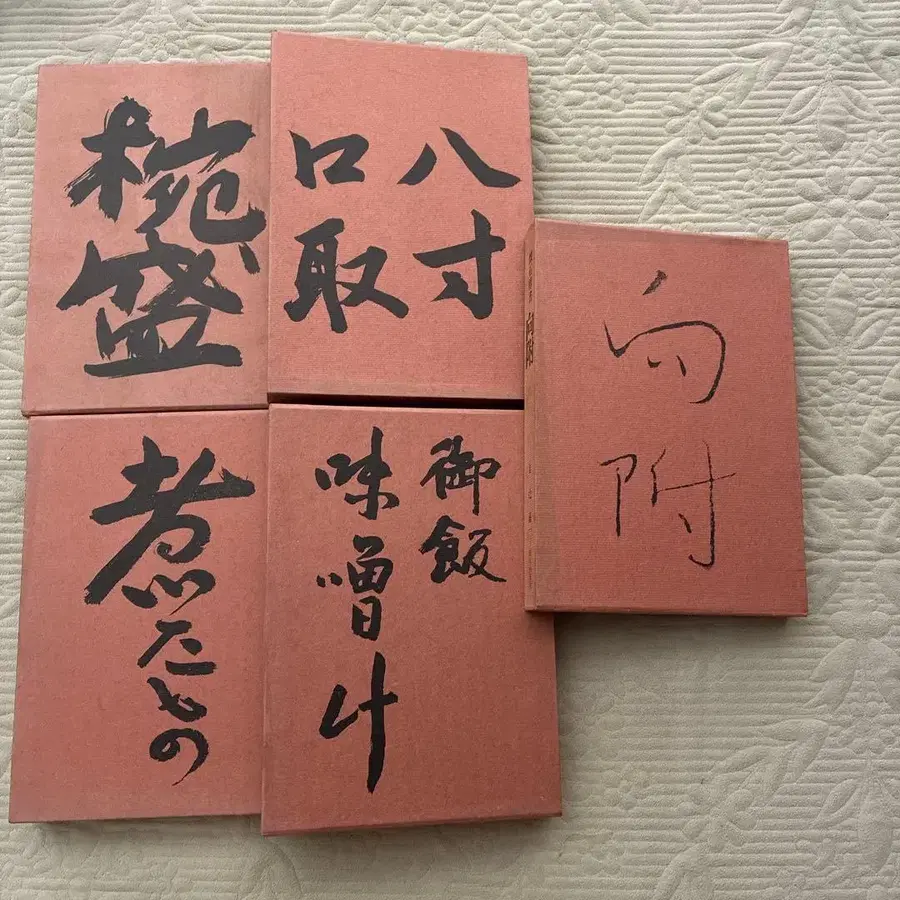 椀盛
八寸
口取
向附
煮たもの
御飯
味噌汁